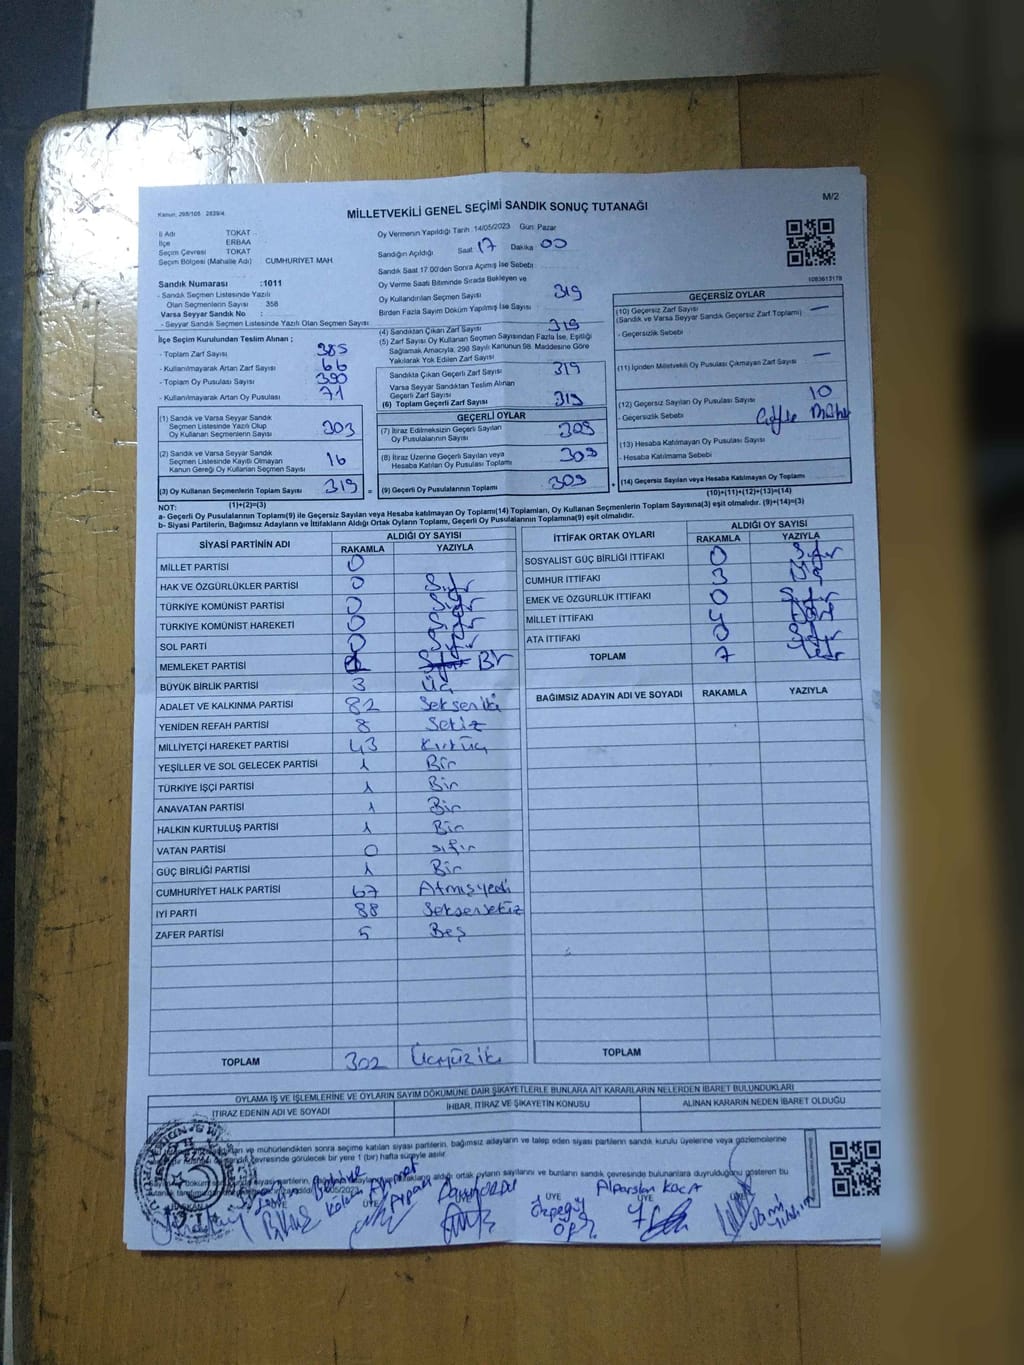 M/2
Kanun, 298/105 2839/4
MİLLETVEKİLİ GENEL SEÇİMİ SANDIK SONUÇ TUTANAĞI
İl Adı TOKAT
İlçe ERBAA
Seçim Çevresi TOKAT
Seçim Bölgesi (Mahalle Adı) CUMHURİYET MAH.
Sandık Numarası :1011
- Sandık Seçmen Listesinde Yazılı
Olan Seçmenlerin Sayısı 358
Varsa Seyyar Sandık No :
- Seyyar Sandık Seçmen Listesinde Yazılı Olan Seçmen Sayısı
İlçe Seçim Kurulundan Teslim Alınan ;
- Toplam Zarf Sayısı 385
- Kullanılmayarak Artan Zarf Sayısı 66
- Toplam Oy Pusulası Sayısı 390
- Kullanılmayarak Artan Oy Pusulası 71
(1) Sandık ve Varsa Seyyar Sandık
Seçmen Listesinde Yazılı Olup
Oy Kullanan Seçmenlerin Sayısı 303
(2) Sandık ve Varsa Seyyar Sandık
Seçmen Listesinde Kayıtlı Olmayan
Kanun Gereği Oy Kullanan Seçmen Sayısı 16
(3) Oy Kullanan Seçmenlerin Toplam Sayısı 319 =
(1)+(2)=(3)
Oy Vermenin Yapıldığı Tarih : 14/05/2023 Gün: Pazar
Sandığın Açıldığı Saat 17 Dakika 00
Sandık Saat 17.00'den Sonra Açımış İse Sebebi
Oy Verme Saati Bitiminde Sırada Bekleyen ve
Oy Kullandırılan Seçmen Sayısı 319
Birden Fazla Sayım Döküm Yapılmış İse Sayısı
(4) Sandıktan Çıkan Zarf Sayısı 319
(5) Zarf Sayısı Oy Kullanan Seçmen Sayısından Fazla İse, Eşitliği
Sağlamak Amacıyla, 298 Sayılı Kanunun 98. Maddesine Göre
Yakılarak Yok Edilen Zarf Sayısı
Sandıkta Çıkan Geçerli Zarf Sayısı 319
Varsa Seyyar Sandıktan Teslim Alınan
Geçerli Zarf Sayısı
(6) Toplam Geçerli Zarf Sayısı 319
GEÇERLİ OYLAR
(7) İtiraz Edilmeksizin Geçerli Sayılan
Oy Pusulalarının Sayısı 309
(8) İtiraz Üzerine Geçerli Sayılan veya
Hesaba Katılan Oy Pusulası Toplamı 309
(9) Geçerli Oy Pusulalarının Toplamı 309 +
1083613178
GEÇERSİZ OYLAR
(10) Geçersiz Zarf Sayısı
(Sandık ve Varsa Seyyar Sandık Geçersiz Zarf Toplamı) —
- Geçersizlik Sebebi
(11) İçinden Milletvekili Oy Pusulası Çıkmayan Zarf Sayısı —
(12) Geçersiz Sayılan Oy Pusulası Sayısı 10
- Geçersizlik Sebebi
(13) Hesaba Katılmayan Oy Pusulası Sayısı
- Hesaba Katılmama Sebebi
(14) Geçersiz Sayılan veya Hesaba Katılmayan Oy Toplamı
(10)+(11)+(12)+(13)=(14)
NOT:
a- Geçerli Oy Pusulaları Toplamı(9) ile Geçersiz Sayılan veya Hesaba katılmayan Oy Toplamı(14) Toplamları, Oy Kullanan Seçmenlerin Toplam Sayısına(3) eşit olmalıdır. (9)+(14)=(3)
b- Siyasi Partilerin, Bağımsız Adayların ve İttifakların Aldığı Ortak Oyların Toplamı, Geçerli Oy Pusulalarının Toplamına(9) eşit olmalıdır.
SİYASİ PARTİNİN ADI ALDIĞI OY SAYISI
RAKAMLA YAZIYLA
MİLLET PARTİSİ 0
HAK VE ÖZGÜRLÜKLER PARTİSİ 0 Sıfır
TÜRKİYE KOMÜNİST PARTİSİ 0 Sıfır
TÜRKİYE KOMÜNİST HAREKETİ 0 Sıfır
SOL PARTİ 0 Sıfır
MEMLEKET PARTİSİ 1 Bir
BÜYÜK BİRLİK PARTİSİ 3 Üç
ADALET VE KALKINMA PARTİSİ 82 Sekseniki
YENİDEN REFAH PARTİSİ 8 Sekiz
MİLLİYETÇİ HAREKET PARTİSİ 43 Kırküç
YEŞİLLER VE SOL GELECEK PARTİSİ 1 Bir
TÜRKİYE İŞÇİ PARTİSİ 1 Bir
ANAVATAN PARTİSİ 1 Bir
HALKIN KURTULUŞ PARTİSİ 1 Bir
VATAN PARTİSİ 0 sıfır
GÜÇ BİRLİĞİ PARTİSİ 1 Bir
CUMHURİYET HALK PARTİSİ 67 Atmışyedi
İYİ PARTİ 88 Seksensekiz
ZAFER PARTİSİ 5 Beş
TOPLAM 302 Üçyüziki
İTTİFAK ORTAK OYLARI ALDIĞI OY SAYISI
RAKAMLA YAZIYLA
SOSYALİST GÜÇ BİRLİĞİ İTTİFAKI 0 Sıfır
CUMHUR İTTİFAKI 3 Üç
EMEK VE ÖZGÜRLÜK İTTİFAKI 0 Sıfır
MİLLET İTTİFAKI 4
ATA İTTİFAKI 0 Sıfır
TOPLAM 7 Yedi
BAĞIMSIZ ADAYIN ADI VE SOYADI RAKAMLA YAZIYLA
TOPLAM
OYLAMA İŞ VE İŞLEMLERİNE VE OYLARIN SAYIM DÖKÜMÜNE DAİR ŞİKAYETLERLE BUNLARA AİT KARARLARIN NELERDEN İBARET BULUNDUKLARI
İTİRAZ EDENİN ADI VE SOYADI İHBAR, İTİRAZ VE ŞİKAYETİN KONUSU ALINAN KARARIN NEDEN İBARET OLDUĞU
ve mühürlendikten sonra seçime katılan siyasi partilerin, bağımsız adayların ve talep eden siyasi partilerin sandık kurulu üyelerine veya gözlemcilerine
sandık çevresinde görülecek bir yere 1 (bir) hafta süreyle asılır.
aldığı ortak oyların sayılarını ve bunların sandık çevresinde bulunanlara duyrulduğunu gösteren bu
ÜYE ÜYE ÜYE
Alparslan KOCA